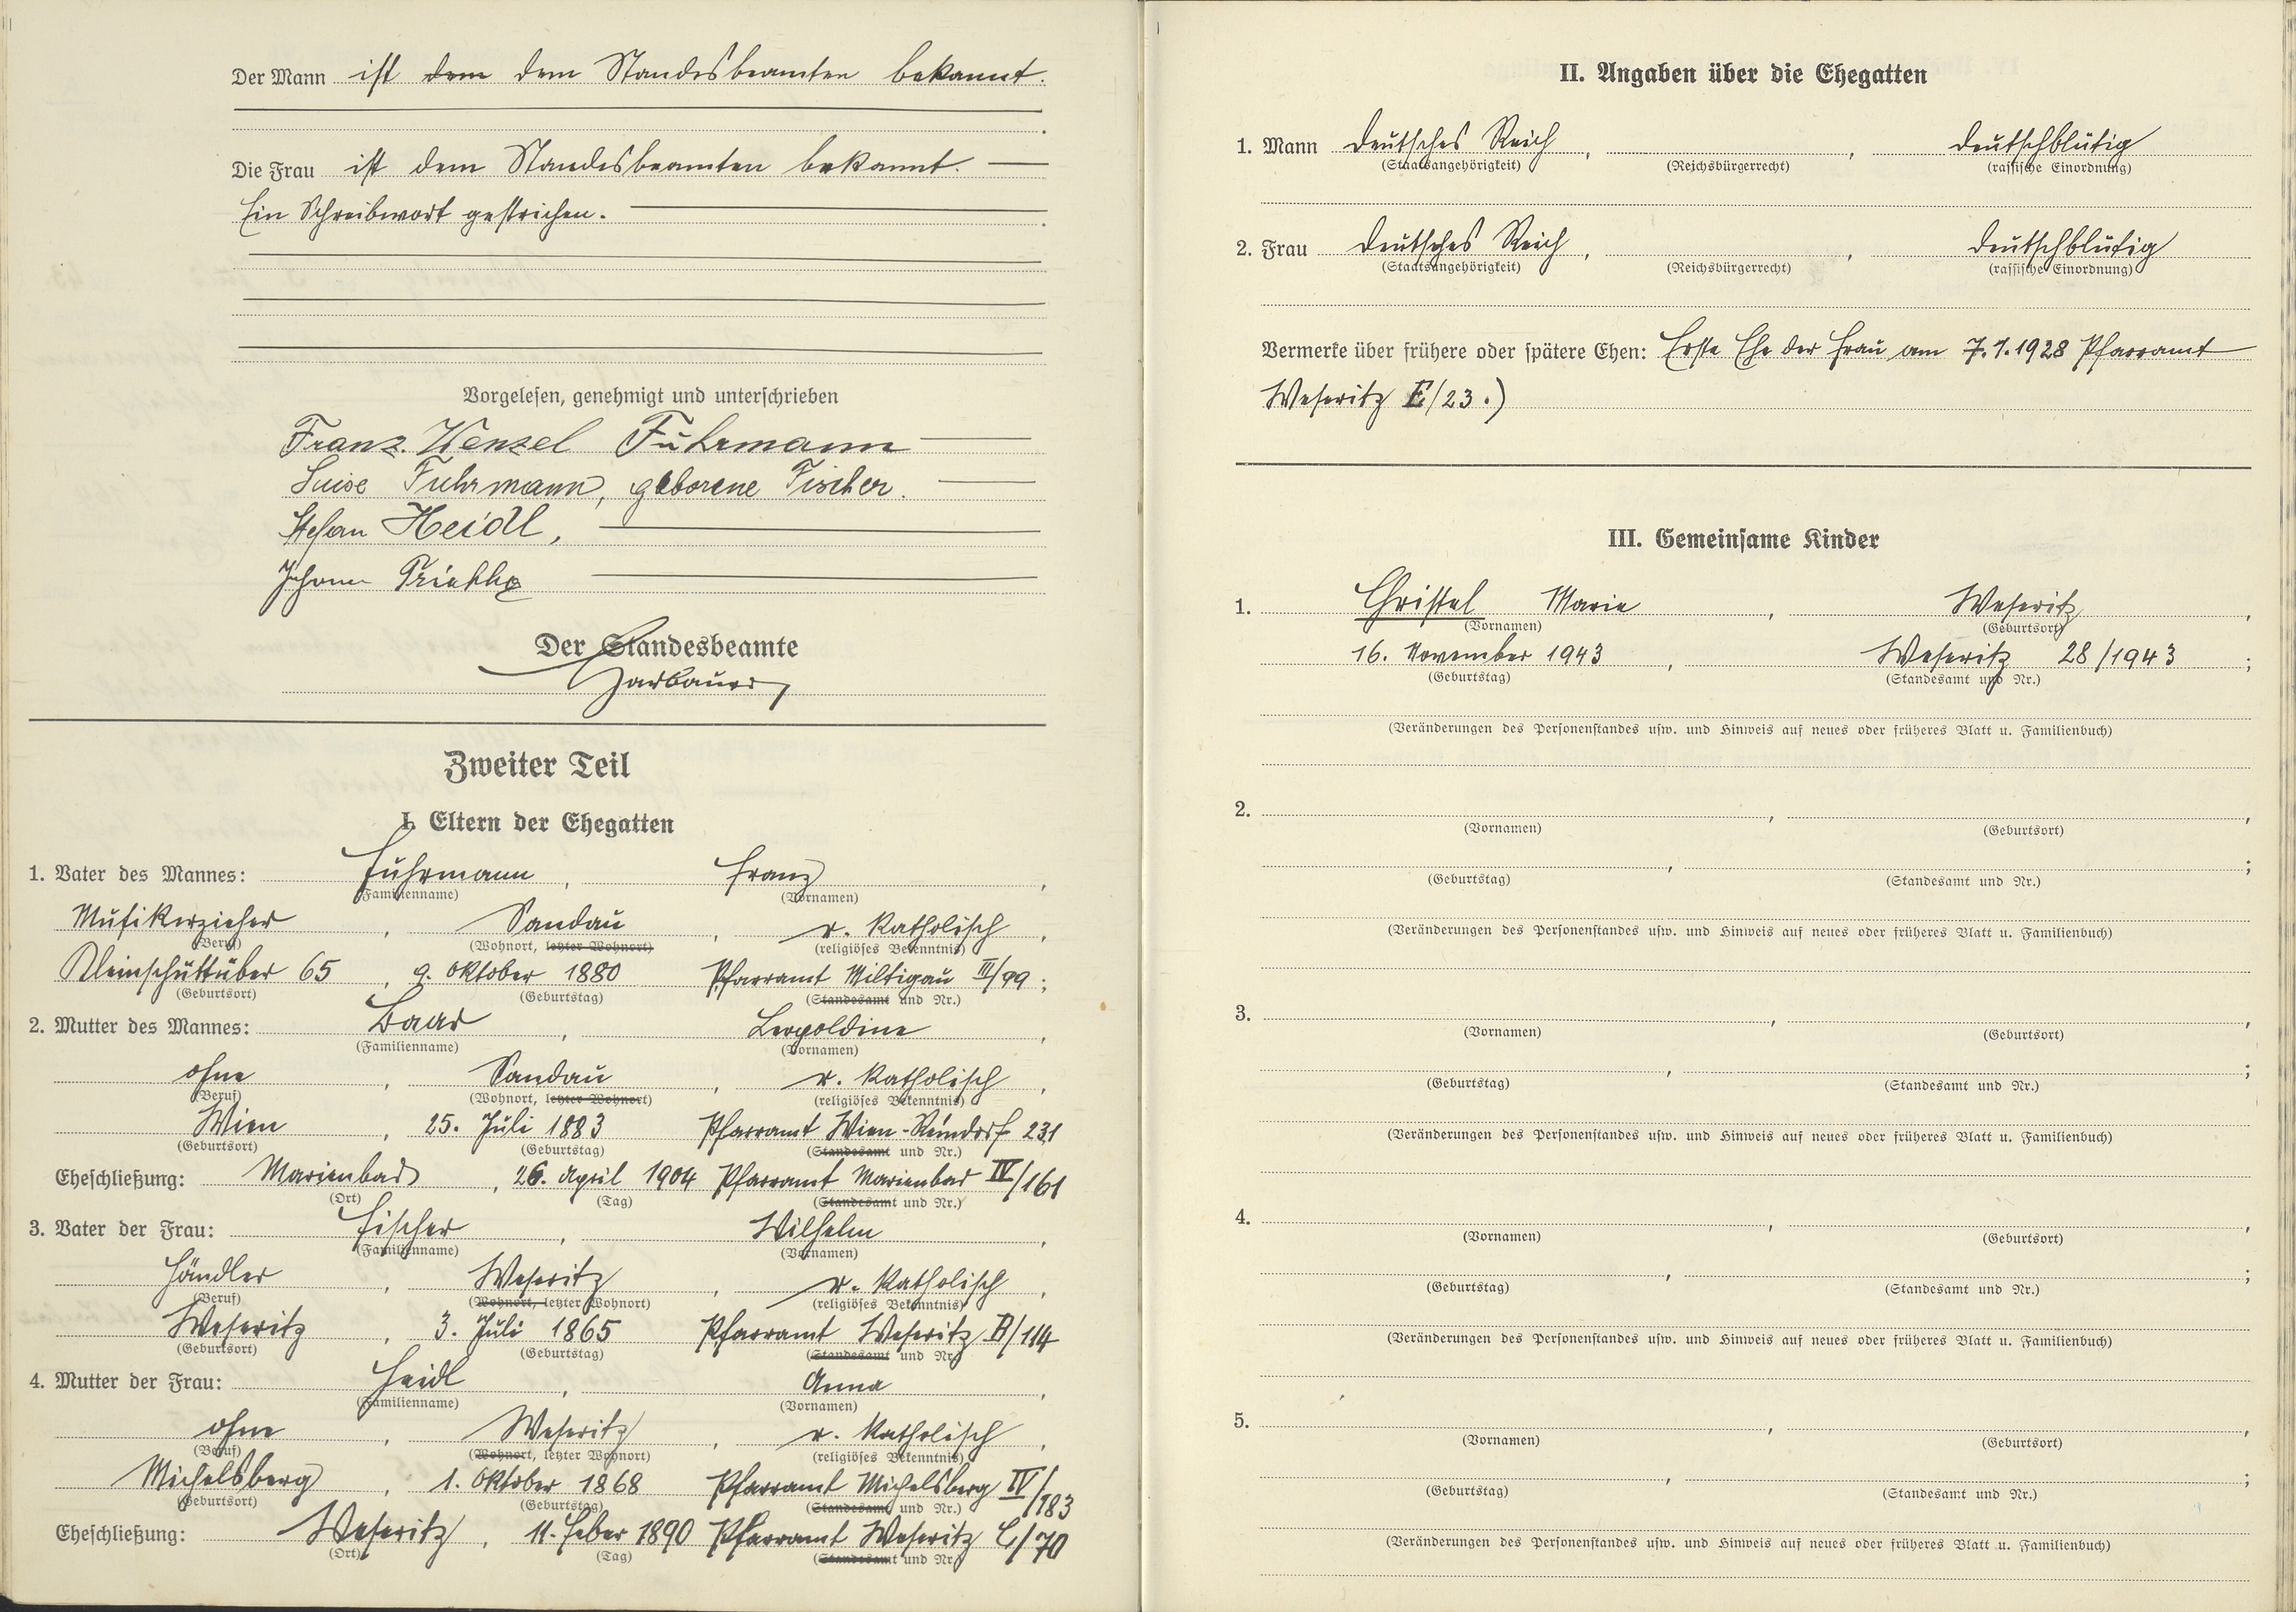 Der Mann ist dem dem Standesbeamten bekannt.
Die Frau ist dem Standesbeamten bekannt.
Ein Schreibwort gestrichen.
Vorgelesen, genehmigt und unterschrieben
Franz Wenzel Fuhrmann
Luise Fuhrmann, geborene Fischer.
Stefan Heidl,
Johann
Der Standesbeamte
Zweiter Teil
I. Eltern der Ehegatten
1. Vater des Mannes: Fuhrmann, Franz,
(Familienname) (Vornamen)
Musikerzieher, Sandau, r. katholisch,
(Beruf) (Wohnort, letzter Wohnort) (religiöses Bekenntnis)
Kleinschüttüber 65, 9. Oktober 1880 Pfarramt Miltigau III/99;
(Geburtsort) (Geburtstag) (Standesamt und Nr.)
2. Mutter des Mannes: Baar, Leopoldine,
(Familienname) (Vornamen)
ohne, Sandau, r. katholisch,
(Beruf) (Wohnort, letzter Wohnort) (religiöses Bekenntnis)
Wien, 25. Juli 1883 Pfarramt Wien-Reindorf 231
(Geburtsort) (Geburtstag) (Standesamt und Nr.)
Eheschließung: Marienbad, 26. April 1904 Pfarramt Marienbad IV/161
(Ort) (Tag) (Standesamt und Nr.)
3. Vater der Frau: Fischer, Wilhelm,
(Familienname) (Vornamen)
Händler, Weseritz, r. katholisch,
(Beruf) (Wohnort, letzter Wohnort) (religiöses Bekenntnis)
Weseritz, 3. Juli 1865 Pfarramt Weseritz B/114
(Geburtsort) (Geburtstag) (Standesamt und Nr.)
4. Mutter der Frau: Heidl, Anna,
(Familienname) (Vornamen)
ohne, Weseritz, r. katholisch,
(Beruf) (Wohnort, letzter Wohnort) (religiöses Bekenntnis)
Michelsberg, 1. Oktober 1868 Pfarramt Michelsberg IV/183
(Geburtsort) (Geburtstag) (Standesamt und Nr.)
Eheschließung: Weseritz, 11. Feber 1890 Pfarramt Weseritz C/70
(Ort) (Tag) (Standesamt und Nr.)
II. Angaben über die Ehegatten
1. Mann Deutsches Reich, , deutschblütig
(Staatsangehörigkeit) (Reichsbürgerrecht) (rassische Einordnung)
2. Frau Deutsches Reich, , deutschblütig
(Staatsangehörigkeit) (Reichsbürgerrecht) (rassische Einordnung)
Vermerke über frühere oder spätere Ehen: Erste Ehe der Frau am 7.1.1928 Pfarramt
Weseritz E/23.)
III. Gemeinsame Kinder
1. Christel Marie, Weseritz,
(Vornamen) (Geburtsort)
16. November 1943, Weseritz 28/1943;
(Geburtstag) (Standesamt und Nr.)
(Veränderungen des Personenstandes usw. und Hinweis auf neues oder früheres Blatt u. Familienbuch)
2. , ,
(Vornamen) (Geburtsort)
, ;
(Geburtstag) (Standesamt und Nr.)
(Veränderungen des Personenstandes usw. und Hinweis auf neues oder früheres Blatt u. Familienbuch)
3. , ,
(Vornamen) (Geburtsort)
, ;
(Geburtstag) (Standesamt und Nr.)
(Veränderungen des Personenstandes usw. und Hinweis auf neues oder früheres Blatt u. Familienbuch)
4. , ,
(Vornamen) (Geburtsort)
, ;
(Geburtstag) (Standesamt und Nr.)
(Veränderungen des Personenstandes usw. und Hinweis auf neues oder früheres Blatt u. Familienbuch)
5. , ,
(Vornamen) (Geburtsort)
, ;
(Geburtstag) (Standesamt und Nr.)
(Veränderungen des Personenstandes usw. und Hinweis auf neues oder früheres Blatt u. Familienbuch)